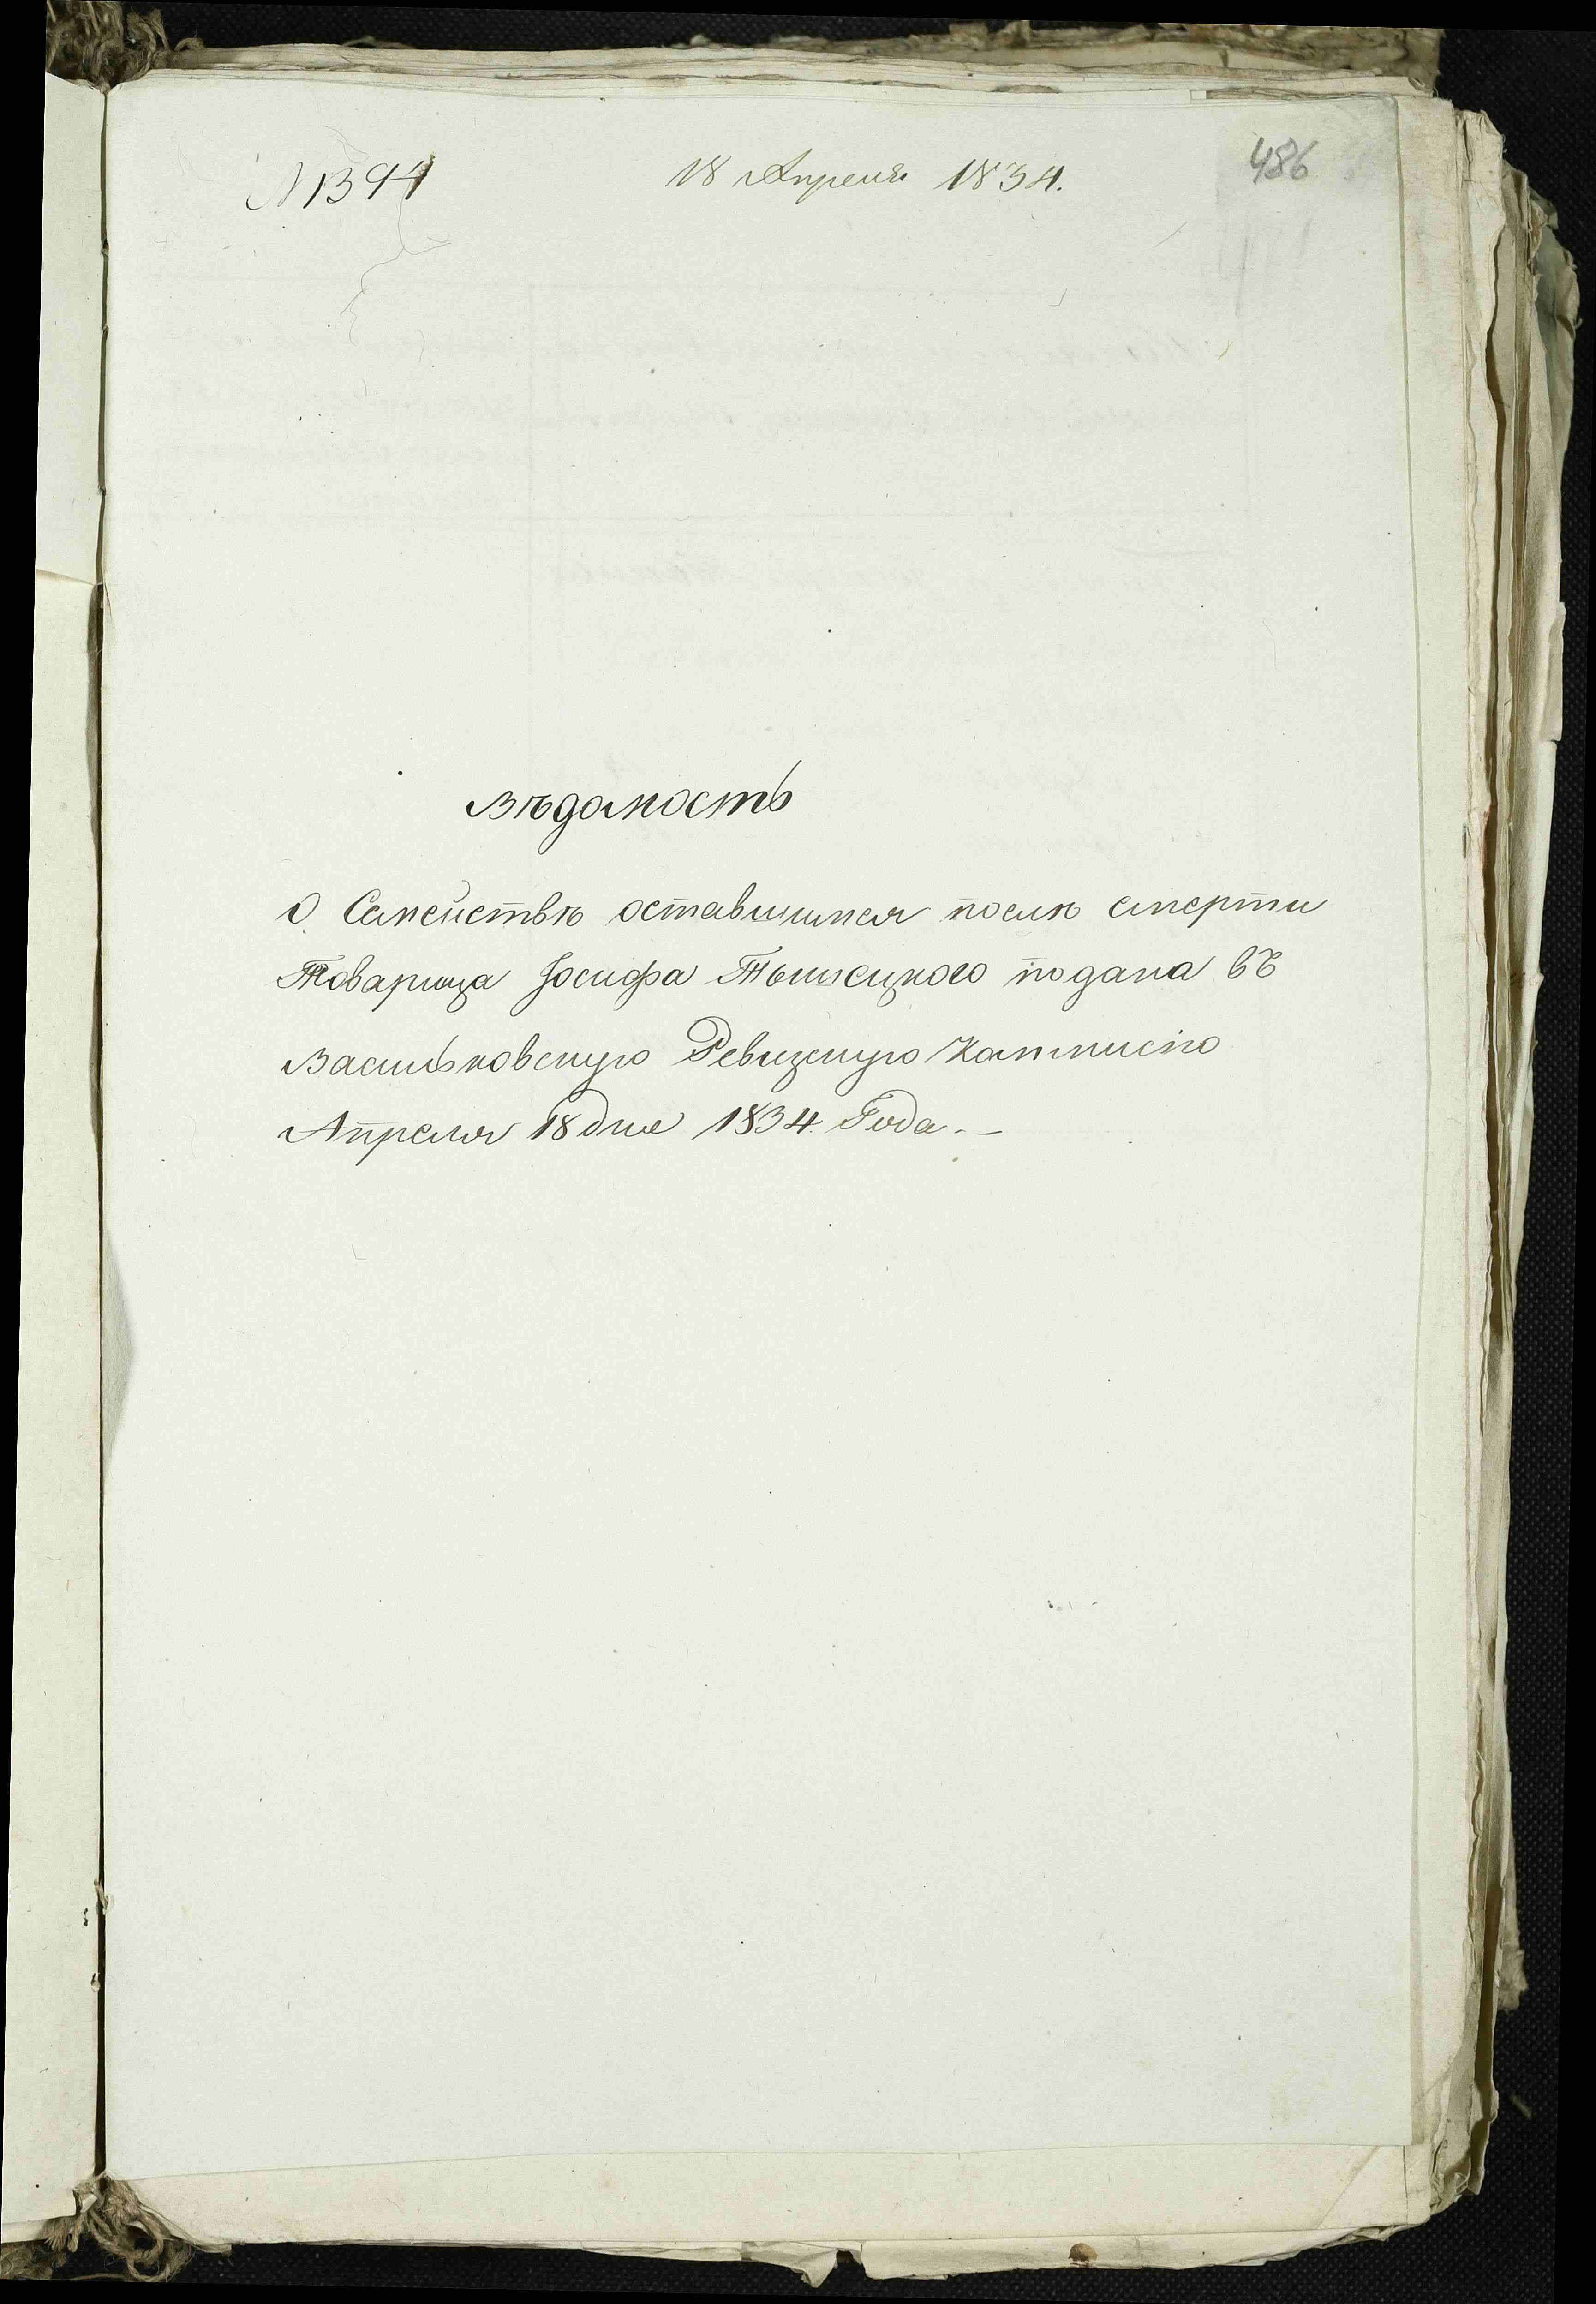 N 1394
18 Апреля 1834.
486
Вѣдомость
О Семействѣ оставшимся послѣ смерти
Товарища Іосифа Тышецкого подана въ
Васильковскую Ревизскую Коммисію
Апреля 18 дня 1834 Года. —